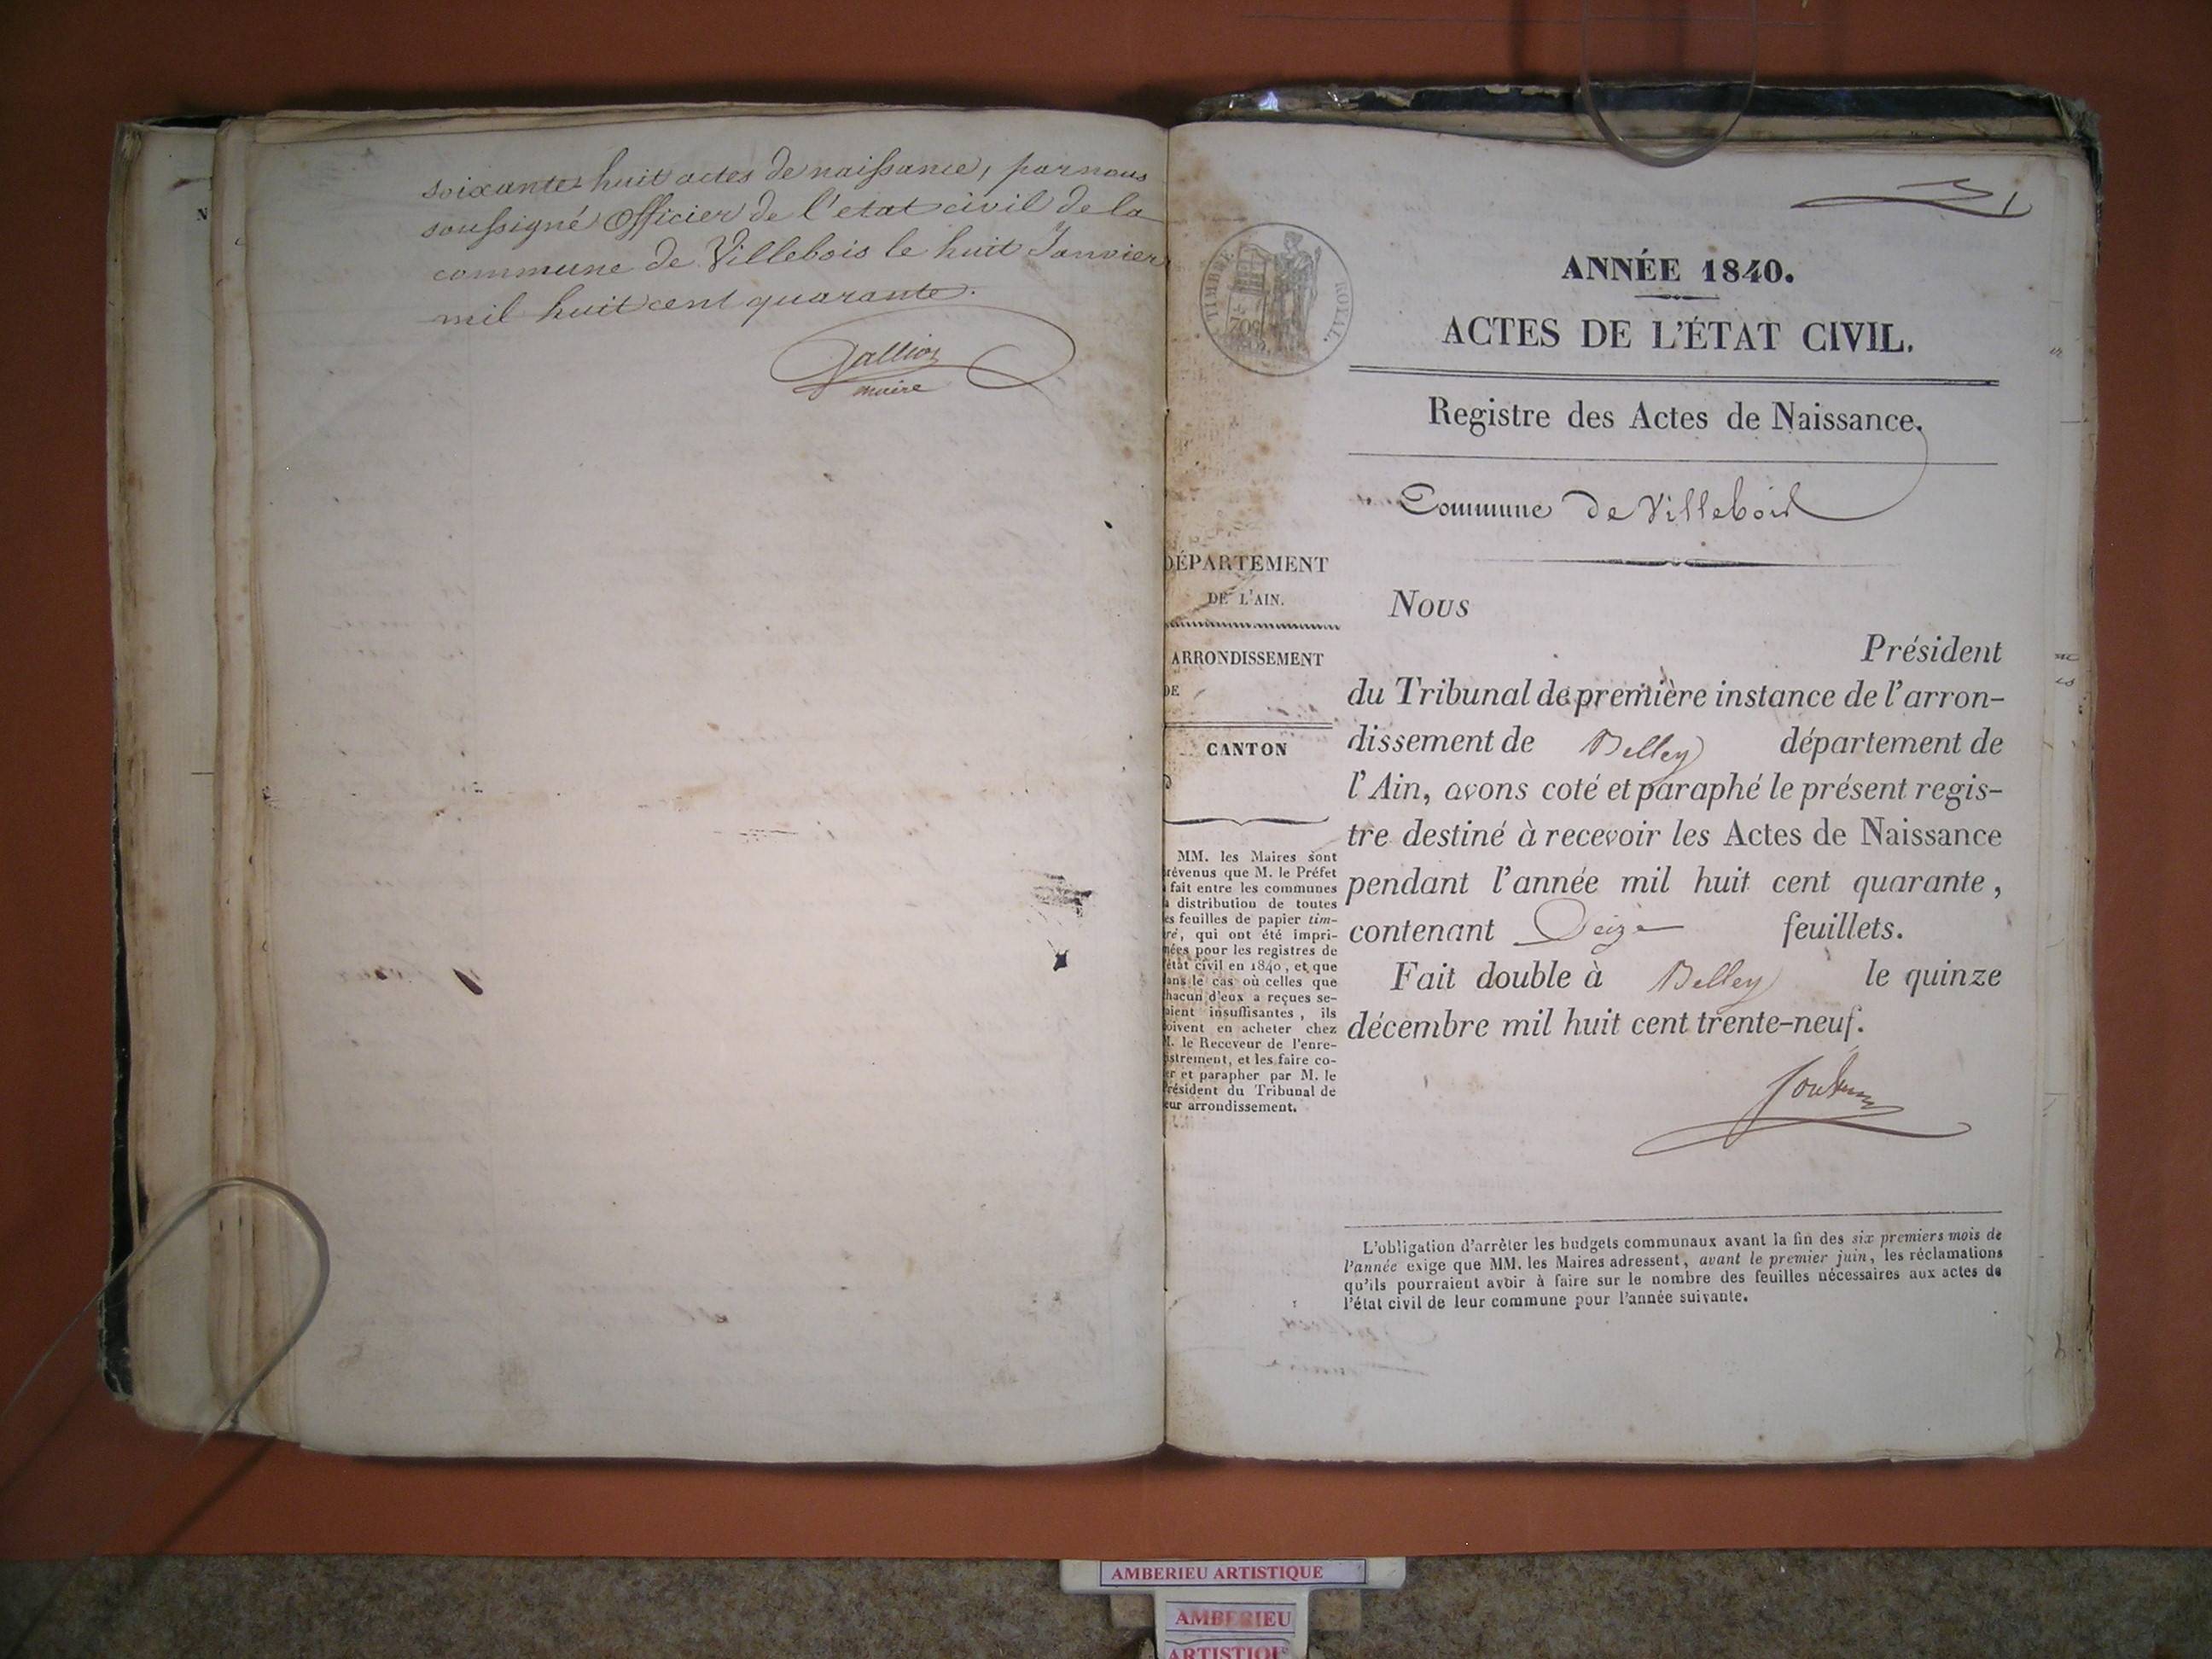 soixante huit actes de naissance, par nous
soussigné Officier de l'etat civil de la
commune de Villebois le huit Janvier
mil huit cent quarante.
maire
TIMBRE ROYAL.
1
ANNÉE 1840.
ACTES DE L'ÉTAT CIVIL.
Registre des Actes de Naissance.
Commune de Villebois
DÉPARTEMENT
DE L'AIN.
ARRONDISSEMENT
DE
CANTON
MM. les Maires sont
révenus que M. le Préfet
fait entre les communes
a distribution de toutes
es feuilles de papier tim-
ré, qui ont été impri-
mées pour les registres de
l'état civil en 1840, et que
dans le cas où celles que
chacun d'eux a reçues se-
raient insuffisantes, ils
doivent en acheter chez
M. le Receveur de l'enre-
istrement, et les faire co-
er et parapher par M. le
Président du Tribunal de
eur arrondissement.
Nous
Président
du Tribunal de première instance de l'arron-
dissement de Belley département de
l'Ain, avons coté et paraphé le présent regis-
tre destiné à recevoir les Actes de Naissance
pendant l'année mil huit cent quarante,
contenant Seize feuillets.
Fait double à Belley le quinze
décembre mil huit cent trente-neuf.
L'obligation d'arrêter les budgets communaux avant la fin des six premiers mois de
l'année exige que MM. les Maires adressent, avant le premier juin, les réclamations
qu'ils pourraient avoir à faire sur le nombre des feuilles nécessaires aux actes de
l'état civil de leur commune pour l'année suivante.
AMBERIEU ARTISTIQUE
AMBERIEU
ARTISTIQUE